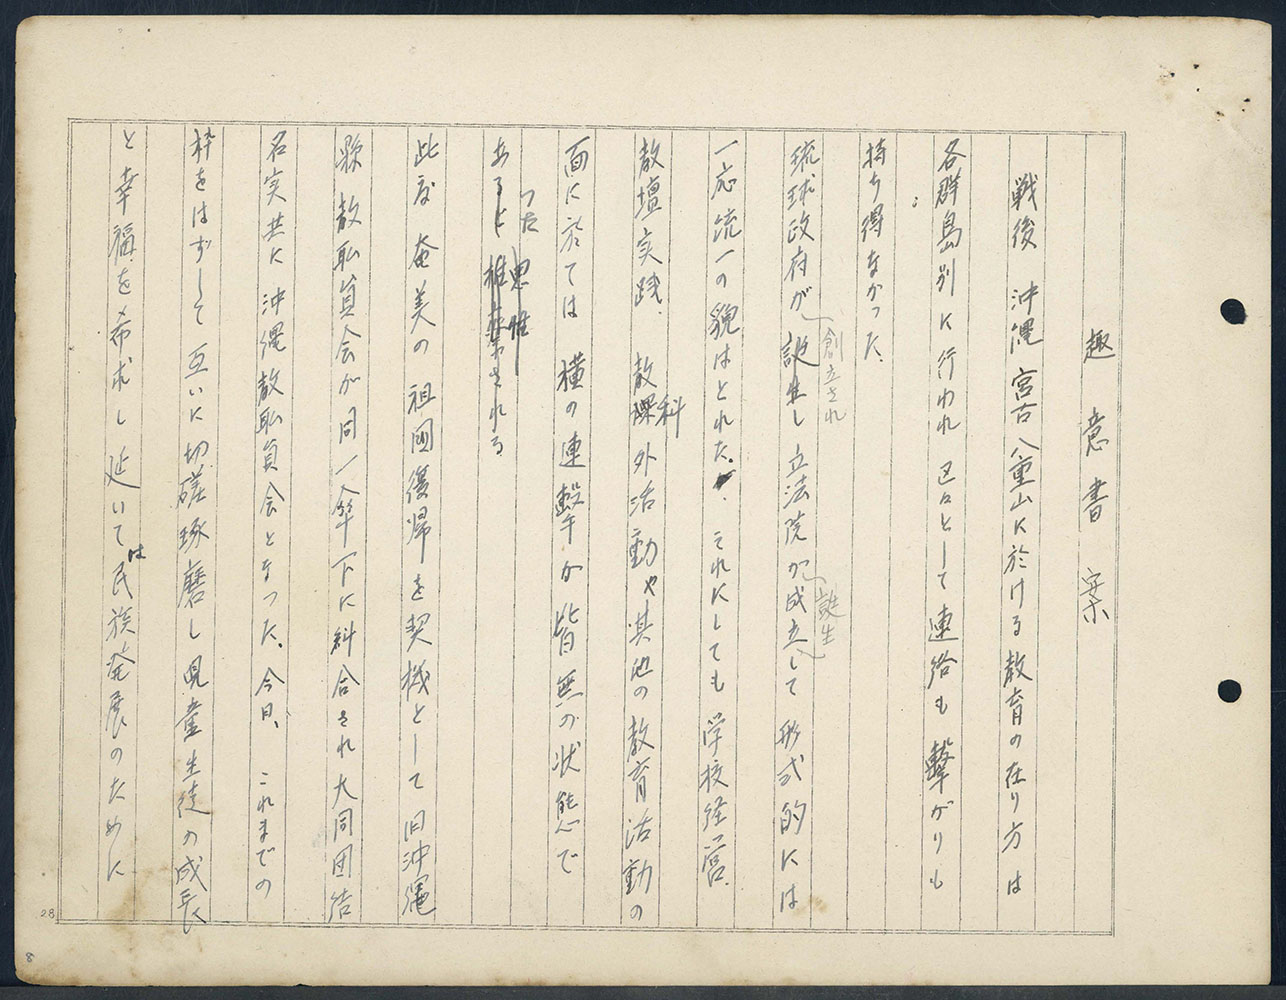 趣意書案
戦後 沖縄 宮古 八重山に於ける教育の在り方は
各群島別に行われ 区々として連絡も繋がりも
持ち得なかった、
琉球政府が誕生し 立法院が成立して 形式的には
創立され
誕生
一応統一の貌はとれた、それにしても 学校経営、
教壇実践、教課外活動や其他の教育活動の
科
面に於ては 横の連繫が皆無の状態で
あると推察される
った
思惟
此度 奄美の 祖國復帰を契機として 旧沖縄
縣教職員会が同一傘下に糾合され大同団結
名実共に 沖縄教職員会となった、今日、これまでの
枠をはずして 互いに切磋琢磨し 児童生徒の成長
と幸福を希求し 延いて民族発展のために
は
28
8